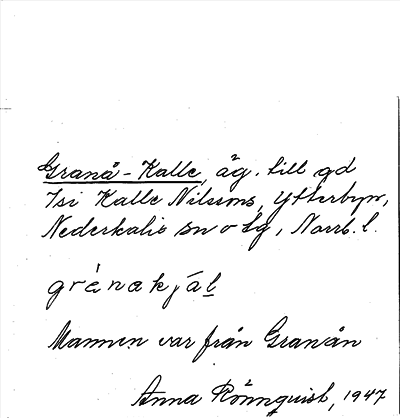 Granå-Kalle, äg. till gd
Isi Kalle Nilssons, Ytterbyn,
Nederkalix sn o tg, Norrb. l.
grànakjál
Mannen var från Granån
Anna Rönnquist, 1947